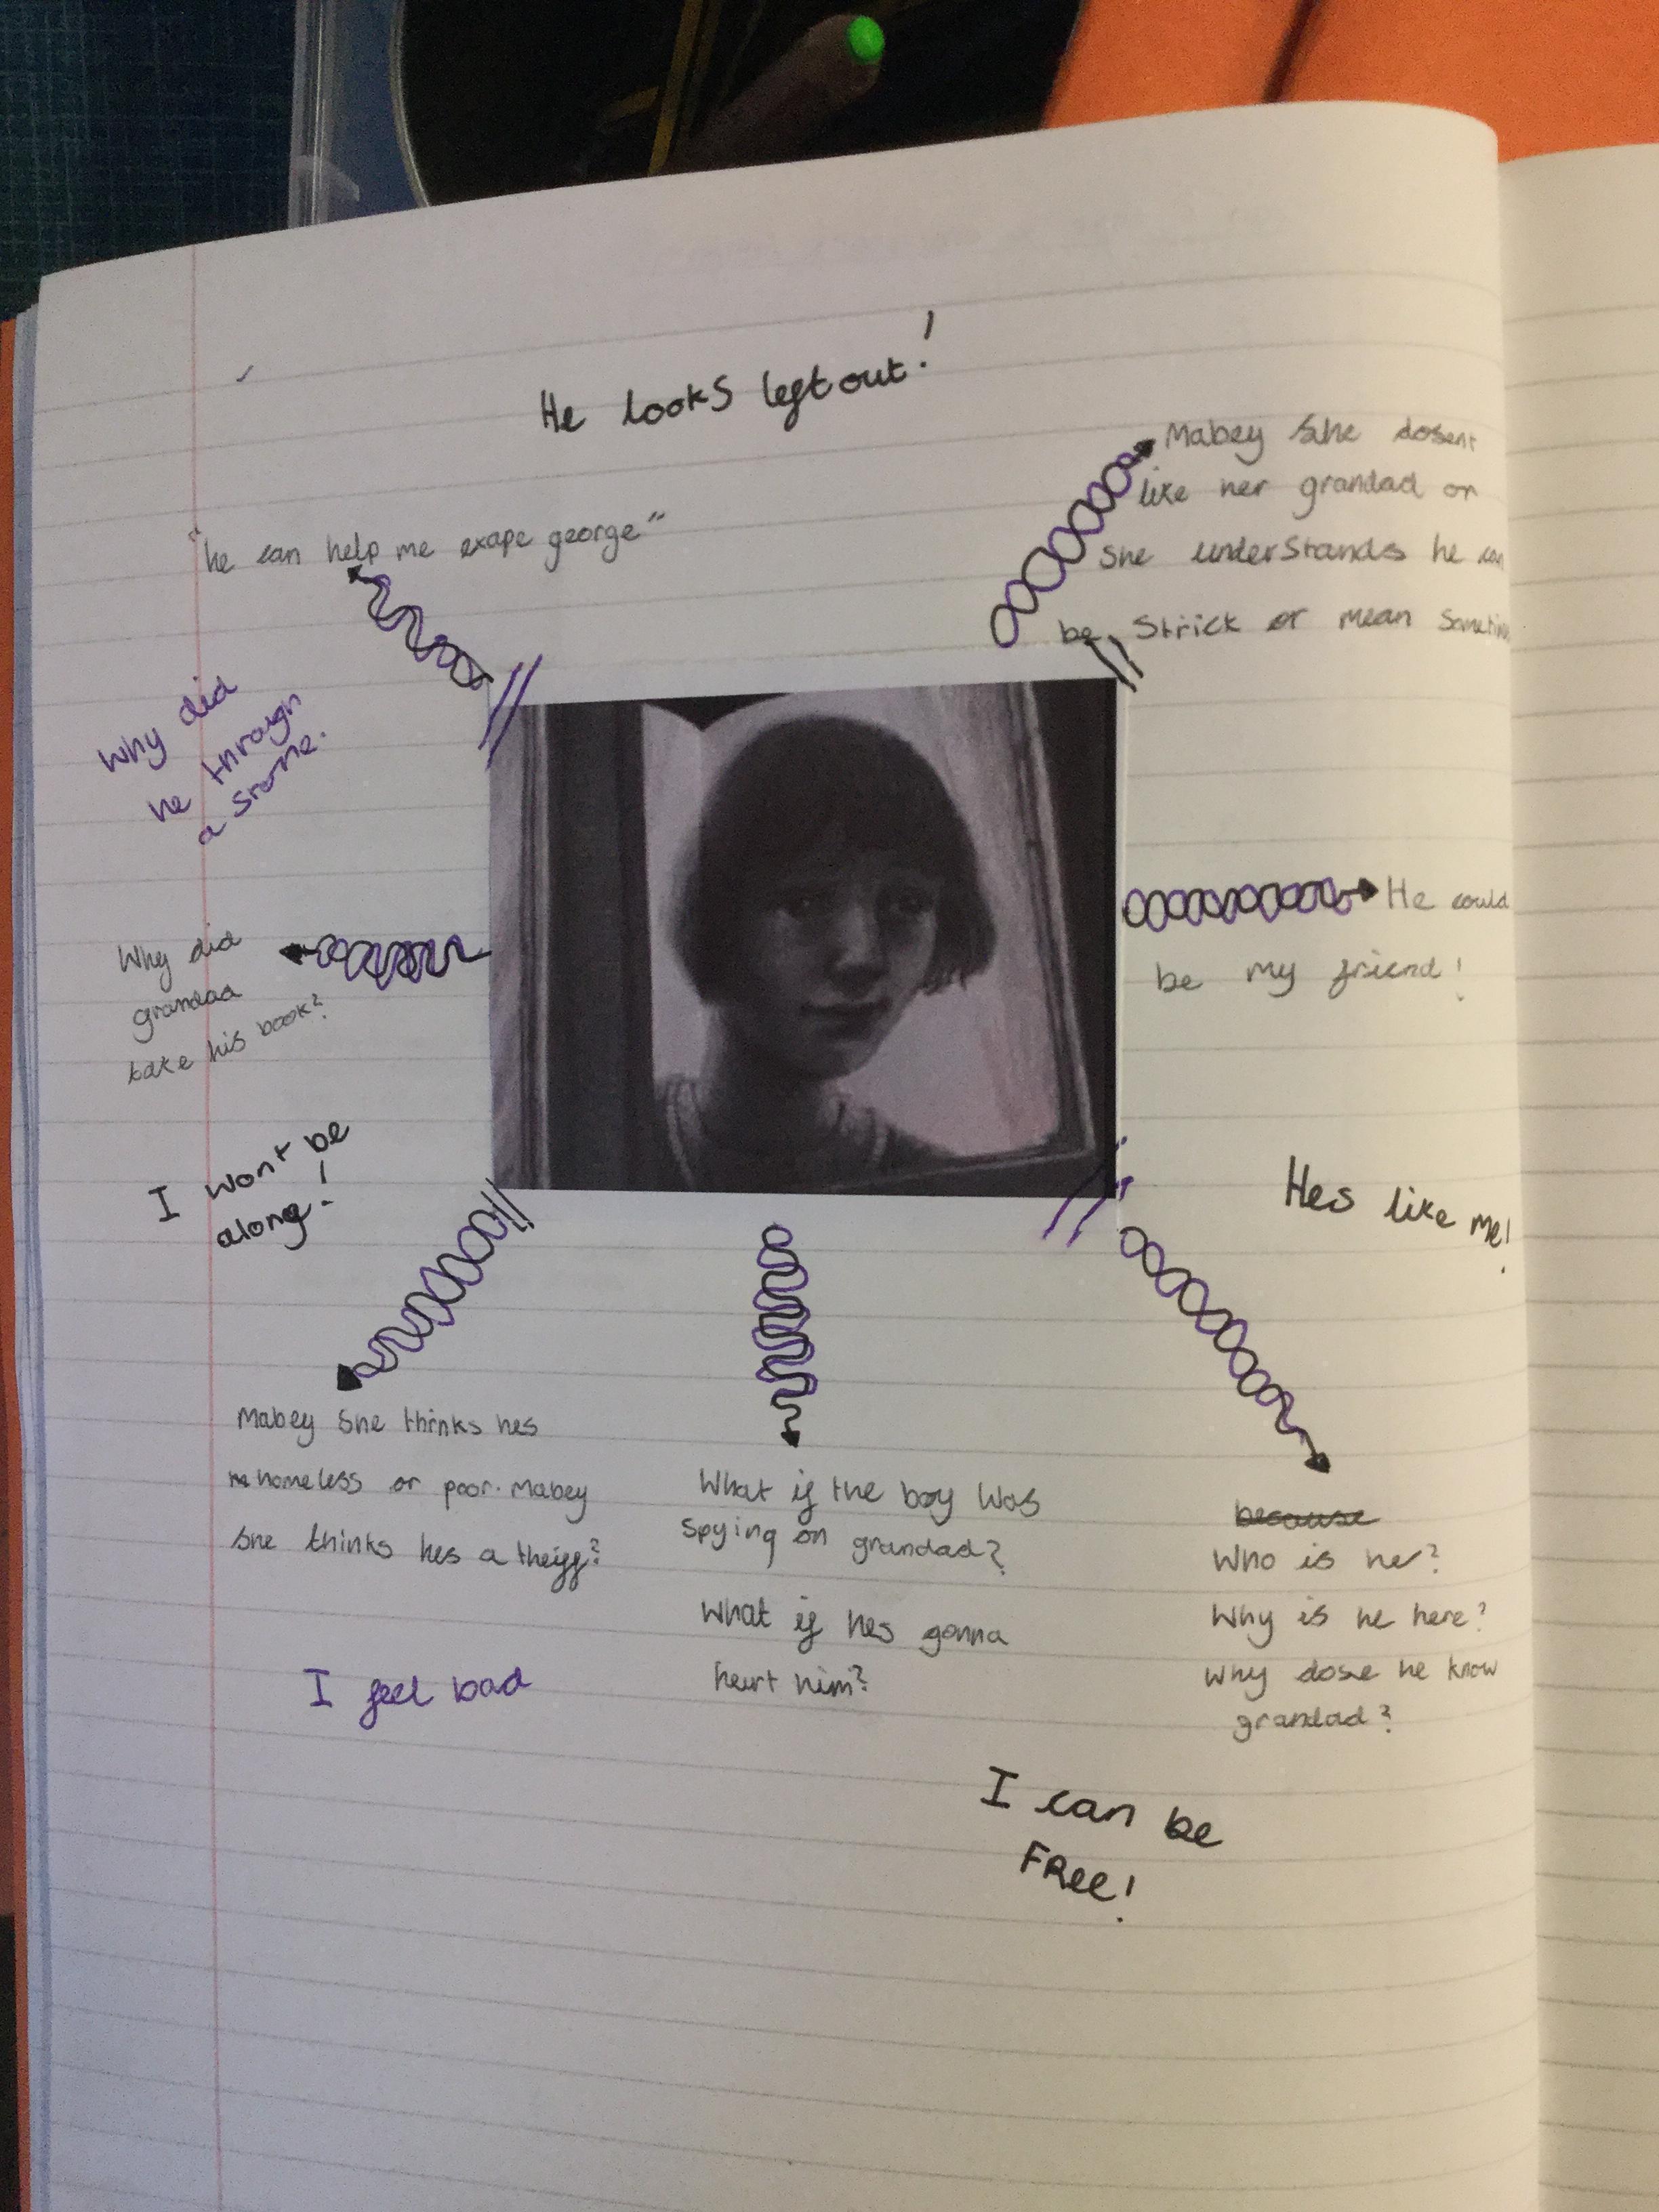 He looks left out!
"he can help me exape george"
Mabey She dosent
like her grandad or
She understands he can
be Strick or mean
Why did
he through
a stone.
Why did
grandad
take his book?
He could
be my friend!
I wont be
along!
Hes like me!
Mabey She thinks hes
homeless or poor. Mabey
She thinks hes a theiff?
What if the boy Was
Spying on grandad?
What if hes gonna
heurt him?
because
Who is he?
Why is he here?
Why dose he know
grandad?
I feel bad
I can be
FRee!